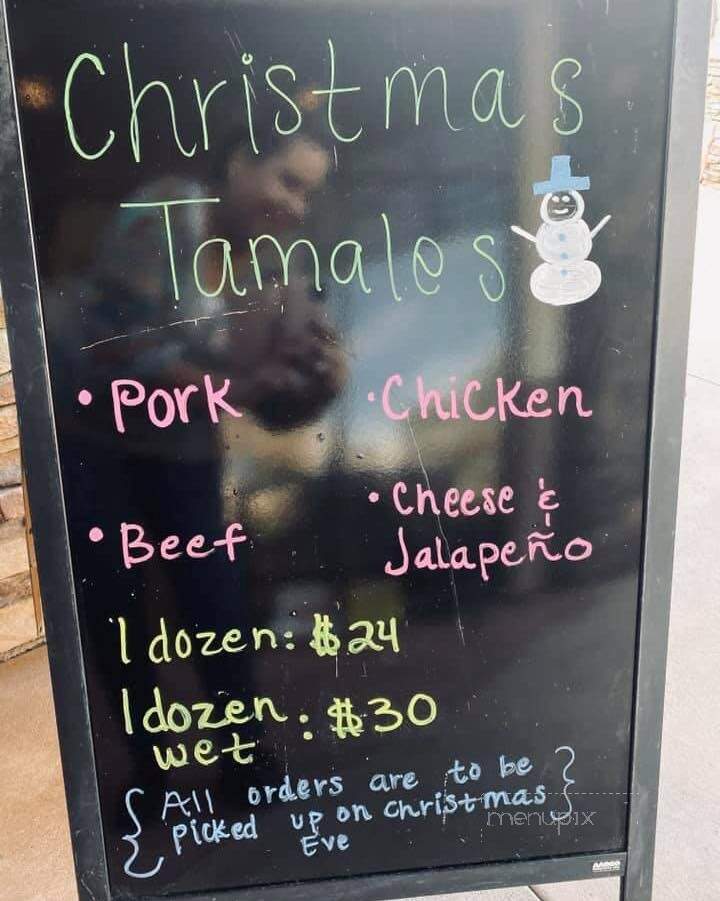 Christmas
Tamales
• Pork
• Chicken
• Beef
• Cheese &
Jalapeño
1 dozen: $24
1 dozen: $30
wet
{ All orders are to be }
picked up on christmas
Eve
menupix